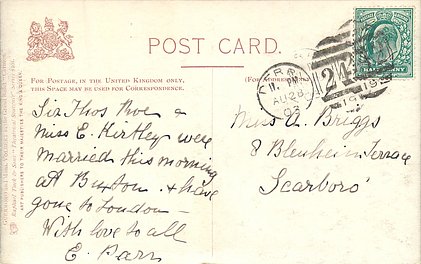 POST CARD.
FOR POSTAGE, IN THE UNITED KINGDOM ONLY,
THIS SPACE MAY BE USED FOR CORRESPONDENCE.
(FOR ADDRESS
Sir Thos Roe &
Miss E. Kirtley were
Married this morning
at Buxton. & have
gone to London —
With love to all
E. Parr
DERBY
AU 28
03
HALFPENNY
Miss A. Briggs
8 Blenheim Terrace
Scarboro'